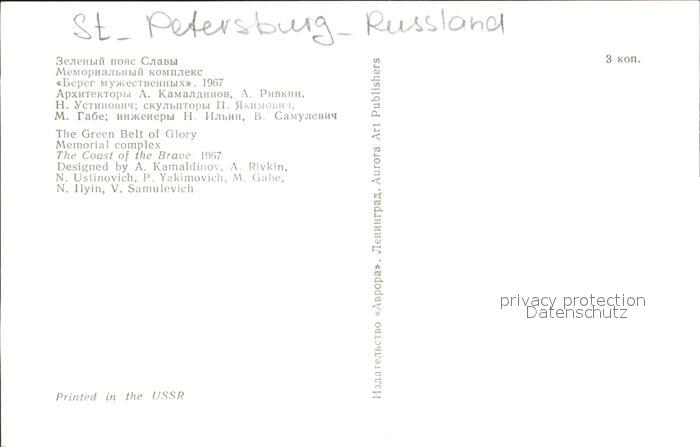 St_ Petersburg_ Russland
Зеленый пояс Славы
Мемориальный комплекс
«Берег мужественных». 1967
Архитекторы А. Камалдинов, А. Ривкин,
Н. Устинович; скульпторы П. Якимович,
М. Габе; инженеры Н. Ильин, В. Самулевич
The Green Belt of Glory
Memorial complex
The Coast of the Brave. 1967
Designed by A. Kamaldinov, A. Rivkin,
N. Ustinovich, P. Yakimovich, M. Gabe,
N. Ilyin, V. Samulevich
Printed in the USSR
Издательство «Аврора». Ленинград. Aurora Art Publishers
3 коп.
privacy protection
Datenschutz